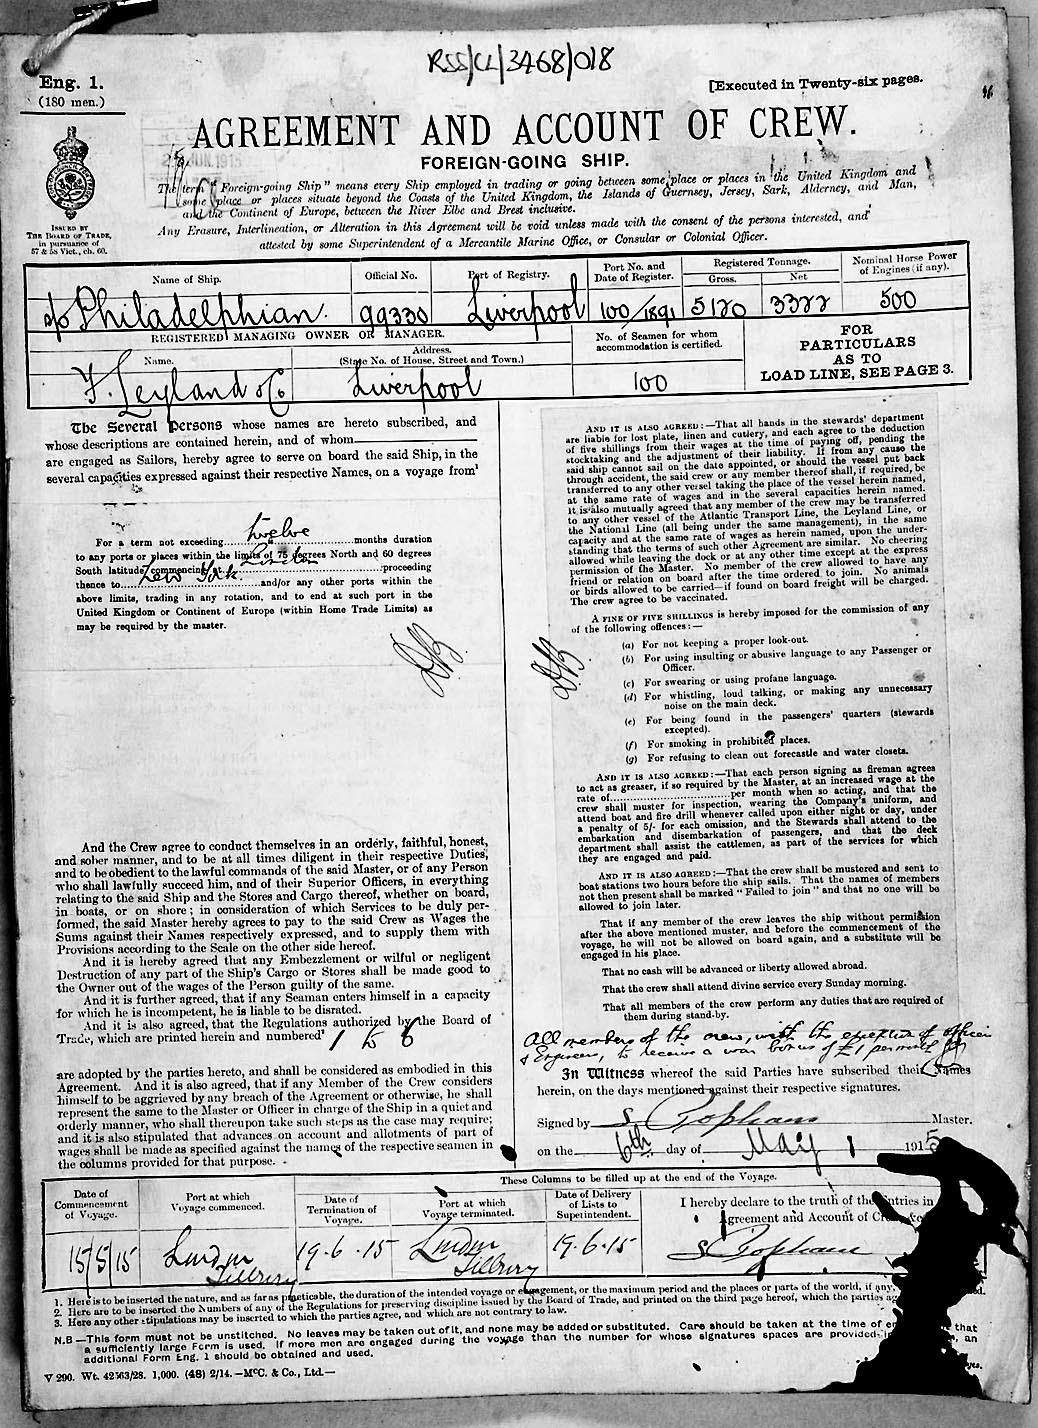 RSS/CL/3468/018
Eng. 1.
(180 men.)
[Executed in Twenty-six pages.
AGREEMENT AND ACCOUNT OF CREW.
FOREIGN-GOING SHIP.
The term "Foreign-going Ship" means every Ship employed in trading or going between some place or places in the United Kingdom and
some place or places situate beyond the Coasts of the United Kingdom, the Islands of Guernsey, Jersey, Sark, Alderney, and Man,
and the Continent of Europe, between the River Elbe and Brest inclusive.
Any Erasure, Interlineation, or Alteration in this Agreement will be void unless made with the consent of the persons interested, and
attested by some Superintendent of a Mercantile Marine Office, or Consular or Colonial Officer.
ISSUED BY
THE BOARD OF TRADE,
in pursuance of
57 & 58 Vict., ch. 60.
Name of Ship.
Official No.
Port of Registry.
Port No. and
Date of Register.
Registered Tonnage.
Gross.
Net
Nominal Horse Power
of Engines (if any).
Philadelphian.
99330
Liverpool
100/1891
5120
3322
500
REGISTERED MANAGING OWNER OR MANAGER.
Name.
Address.
(State No. of House, Street and Town.)
No. of Seamen for whom
accommodation is certified.
FOR
PARTICULARS
AS TO
LOAD LINE, SEE PAGE 3.
F. Leyland & Co
Liverpool
100
The Several Persons whose names are hereto subscribed, and
whose descriptions are contained herein, and of whom
are engaged as Sailors, hereby agree to serve on board the said Ship, in the
several capacities expressed against their respective Names, on a voyage from¹
For a term not exceeding twelve months duration
to any ports or places within the limits of 75 degrees North and 60 degrees
South latitude, commencing at London proceeding
thence to New York and/or any other ports within the
above limits, trading in any rotation, and to end at such port in the
United Kingdom or Continent of Europe (within Home Trade Limits) as
may be required by the master.
And the Crew agree to conduct themselves in an orderly, faithful, honest,
and sober manner, and to be at all times diligent in their respective Duties,
and to be obedient to the lawful commands of the said Master, or of any Person
who shall lawfully succeed him, and of their Superior Officers, in everything
relating to the said Ship and the Stores and Cargo thereof, whether on board,
in boats, or on shore; in consideration of which Services to be duly per-
formed, the said Master hereby agrees to pay to the said Crew as Wages the
Sums against their Names respectively expressed, and to supply them with
Provisions according to the Scale on the other side hereof.
And it is hereby agreed that any Embezzlement or wilful or negligent
Destruction of any part of the Ship's Cargo or Stores shall be made good to
the Owner out of the wages of the Person guilty of the same.
And it is further agreed, that if any Seaman enters himself in a capacity
for which he is incompetent, he is liable to be disrated.
And it is also agreed, that the Regulations authorized by the Board of
Trade, which are printed herein and numbered² 1 to 8
are adopted by the parties hereto, and shall be considered as embodied in this
Agreement. And it is also agreed, that if any Member of the Crew considers
himself to be aggrieved by any breach of the Agreement or otherwise, he shall
represent the same to the Master or Officer in charge of the Ship in a quiet and
orderly manner, who shall thereupon take such steps as the case may require;
and it is also stipulated that advances on account and allotments of part of
wages shall be made as specified against the names of the respective seamen in
the columns provided for that purpose.
AND IT IS ALSO AGREED:—That all hands in the stewards' department
are liable for lost plate, linen and cutlery, and each agree to the deduction
of five shillings from their wages at the time of paying off, pending the
stocktaking and the adjustment of their liability. If from any cause the
said ship cannot sail on the date appointed, or should the vessel put back
through accident, the said crew or any member thereof shall, if required, be
transferred to any other vessel taking the place of the vessel herein named,
at the same rate of wages and in the several capacities herein named.
It is also mutually agreed that any member of the crew may be transferred
to any other vessel of the Atlantic Transport Line, the Leyland Line, or
the National Line (all being under the same management), in the same
capacity and at the same rate of wages as herein named, upon the under-
standing that the terms of such other Agreement are similar. No cheering
allowed while leaving the dock or at any other time except at the express
permission of the Master. No member of the crew allowed to have any
friend or relation on board after the time ordered to join. No animals
or birds allowed to be carried—if found on board freight will be charged.
The crew agree to be vaccinated.
A FINE OF FIVE SHILLINGS is hereby imposed for the commission of any
of the following offences:—
(a) For not keeping a proper look-out.
(b) For using insulting or abusive language to any Passenger or
Officer.
(c) For swearing or using profane language.
(d) For whistling, loud talking, or making any unnecessary
noise on the main deck.
(e) For being found in the passengers' quarters (stewards
excepted).
(f) For smoking in prohibited places.
(g) For refusing to clean out forecastle and water closets.
AND IT IS ALSO AGREED:—That each person signing as fireman agrees
to act as greaser, if so required by the Master, at an increased wage at the
rate of per month when so acting, and that the
crew shall muster for inspection, wearing the Company's uniform, and
attend boat and fire drill whenever called upon either night or day, under
a penalty of 5/- for each omission, and the Stewards shall attend to the
embarkation and disembarkation of passengers, and that the deck
department shall assist the cattlemen, as part of the services for which
they are engaged and paid.
AND IT IS ALSO AGREED:—That the crew shall be mustered and sent to
boat stations two hours before the ship sails. That the names of members
not then present shall be marked "Failed to join" and that no one will be
allowed to join later.
That if any member of the crew leaves the ship without permission
after the above mentioned muster, and before the commencement of the
voyage, he will not be allowed on board again, and a substitute will be
engaged in his place.
That no cash will be advanced or liberty allowed abroad.
That the crew shall attend divine service every Sunday morning.
That all members of the crew perform any duties that are required of
them during stand-by.
All members of the crew, with the exception of officers
& Engineers, to receive a war bonus of £1 per month
In Witness whereof the said Parties have subscribed their Names
herein, on the days mentioned against their respective signatures.
Signed by S Popham Master.
on the 6th day of May 1915
These Columns to be filled up at the end of the Voyage.
Date of
Commencement
of Voyage.
Port at which
Voyage commenced.
Date of
Termination of
Voyage.
Port at which
Voyage terminated.
Date of Delivery
of Lists to
Superintendent.
I hereby declare to the truth of the Entries in
Agreement and Account of
15/5/15
London
Tilbury
19-6-15
London
Tilbury
19.6.15
S Popham
1. Here is to be inserted the nature, and as far as practicable, the duration of the intended voyage or engagement, or the maximum period and the places or parts of the world, if any,
2. Here are to be inserted the Numbers of any of the Regulations for preserving discipline issued by the Board of Trade, and printed on the third page hereof, which the parties
3. Here any other stipulations may be inserted to which the parties agree, and which are not contrary to law.
N.B—This form must not be unstitched. No leaves may be taken out of it, and none may be added or substituted. Care should be taken at the time of that
a sufficiently large Form is used. If more men are engaged during the voyage than the number for whose signatures spaces are provided an
additional Form Eng. 1 should be obtained and used.
V 290. Wt. 42563/28. 1,000. (48) 2/14.—McC. & Co., Ltd.—